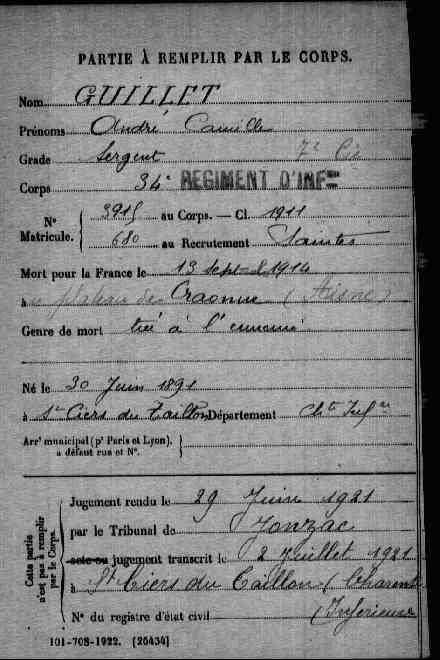 PARTIE À REMPLIR PAR LE CORPS.
Nom GUILLET
Prénoms André Camille
Grade Sergent 7e Cie
Corps 34e REGIMENT D'INFie
N° Matricule. { 3915 au Corps. — Cl. 1911
680 au Recrutement Saintes
Mort pour la France le 13 sept 1914
à plateau de Craonne (Aisne)
Genre de mort tué à l'ennemi
Né le 30 Juin 1891
à St Ciers du Taillon Département Chte Infre
Arrt municipal (pr Paris et Lyon), à défaut rue et N°. }
Cette partie n'est pas à remplir par le Corps. {
Jugement rendu le 29 Juin 1921
par le Tribunal de Jonzac
acte ou jugement transcrit le 2 Juillet 1921
à St Ciers du Taillon (Charente
N° du registre d'état civil Inférieure
101-708-1922. [26434]